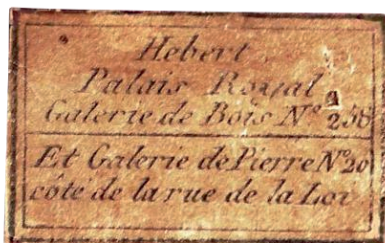 Hebert
Palais Royal
Galerie de Bois N° 258
Et Galerie de Pierre N° 20
côté de la rue de la Loi